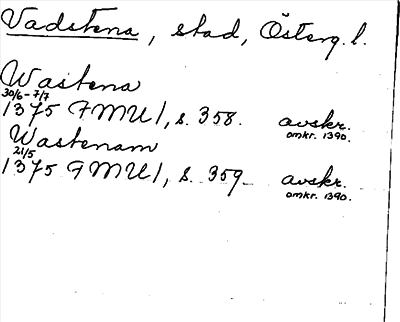 Vadstena, stad, Österg. l.
Wastena
30/6-7/7
1375 FMU 1, s. 358. avskr.
omkr. 1390.
Wastenam
21/5
1375 FMU 1, s. 359 avskr.
omkr. 1390.